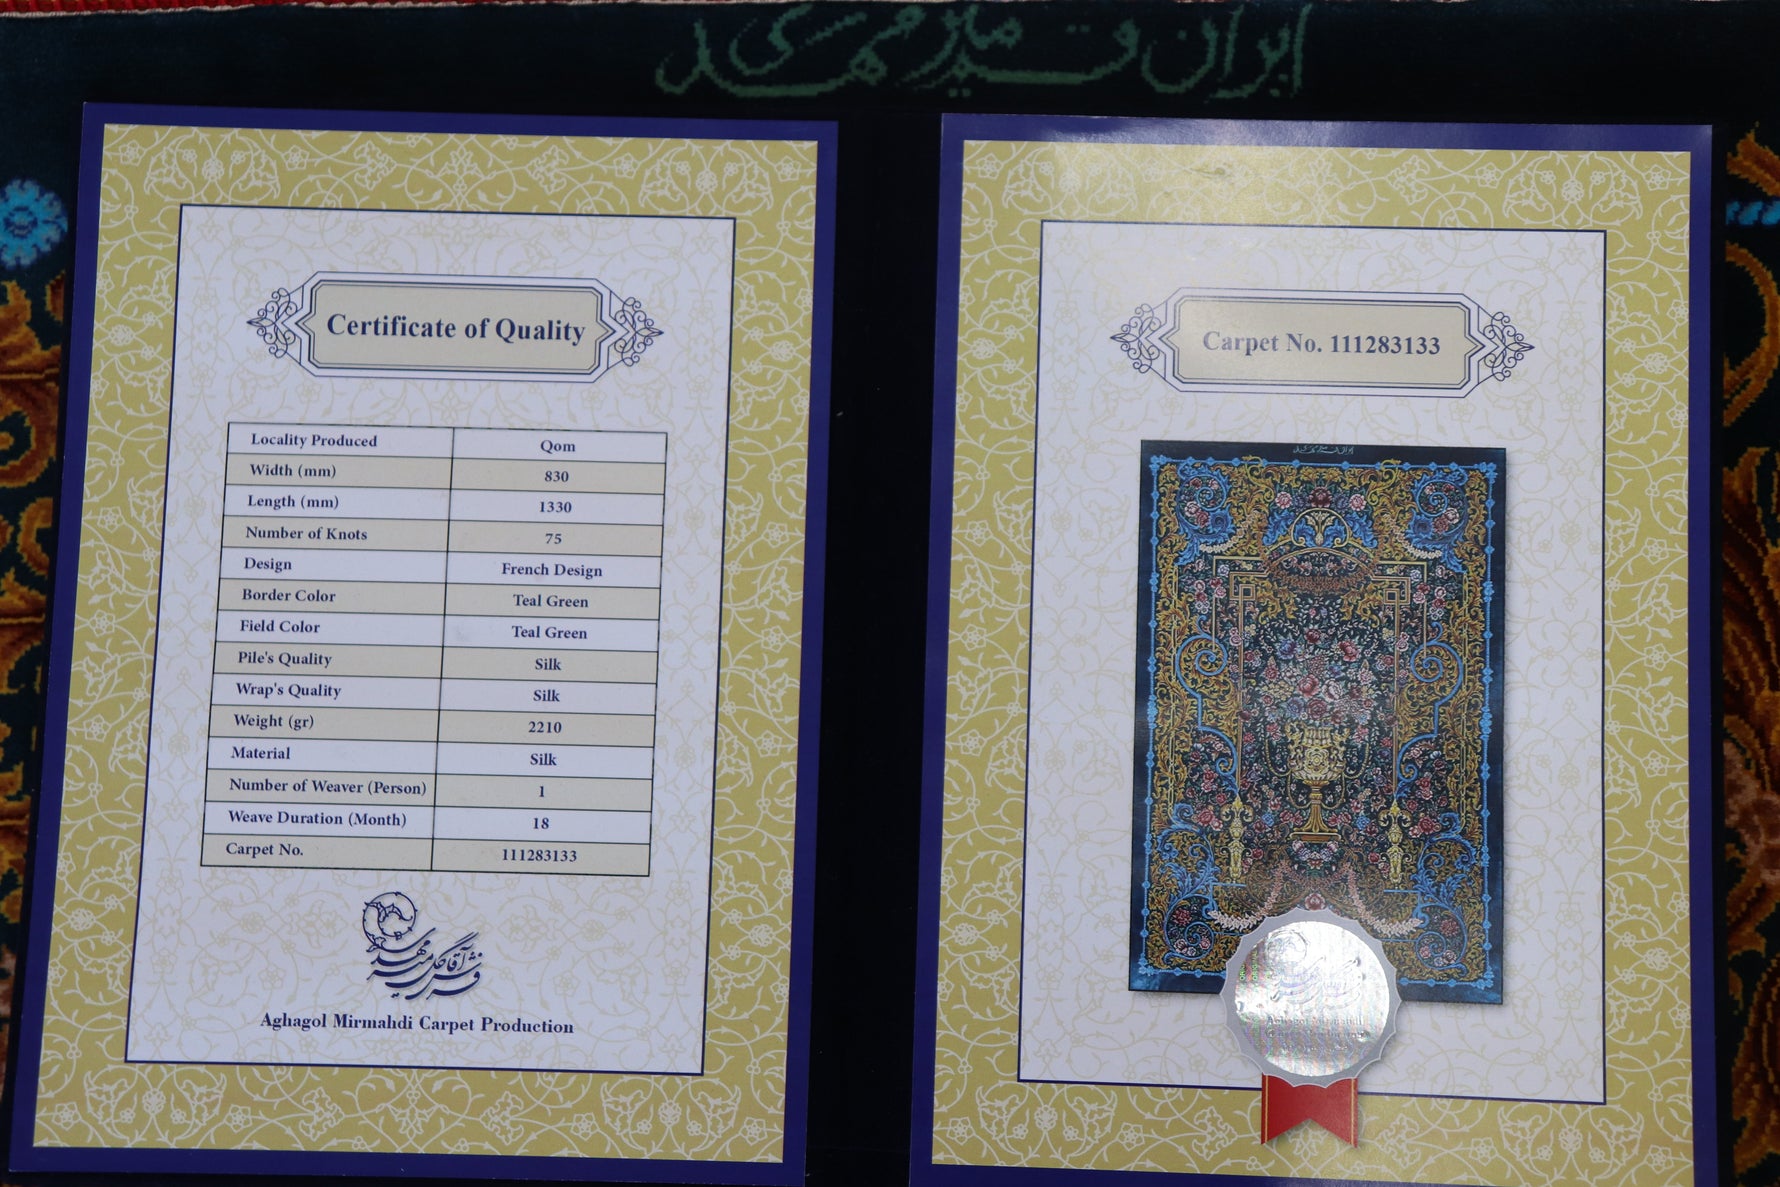 ایران قم میرمهدی
Certificate of Quality
Locality Produced Qom
Width (mm) 830
Length (mm) 1330
Number of Knots 75
Design French Design
Border Color Teal Green
Field Color Teal Green
Pile's Quality Silk
Wrap's Quality Silk
Weight (gr) 2210
Material Silk
Number of Weaver (Person) 1
Weave Duration (Month) 18
Carpet No. 111283133
فرش آقاگل میرمهدی
Aghagol Mirmahdi Carpet Production
Carpet No. 111283133
Aghagol Mirmahdi